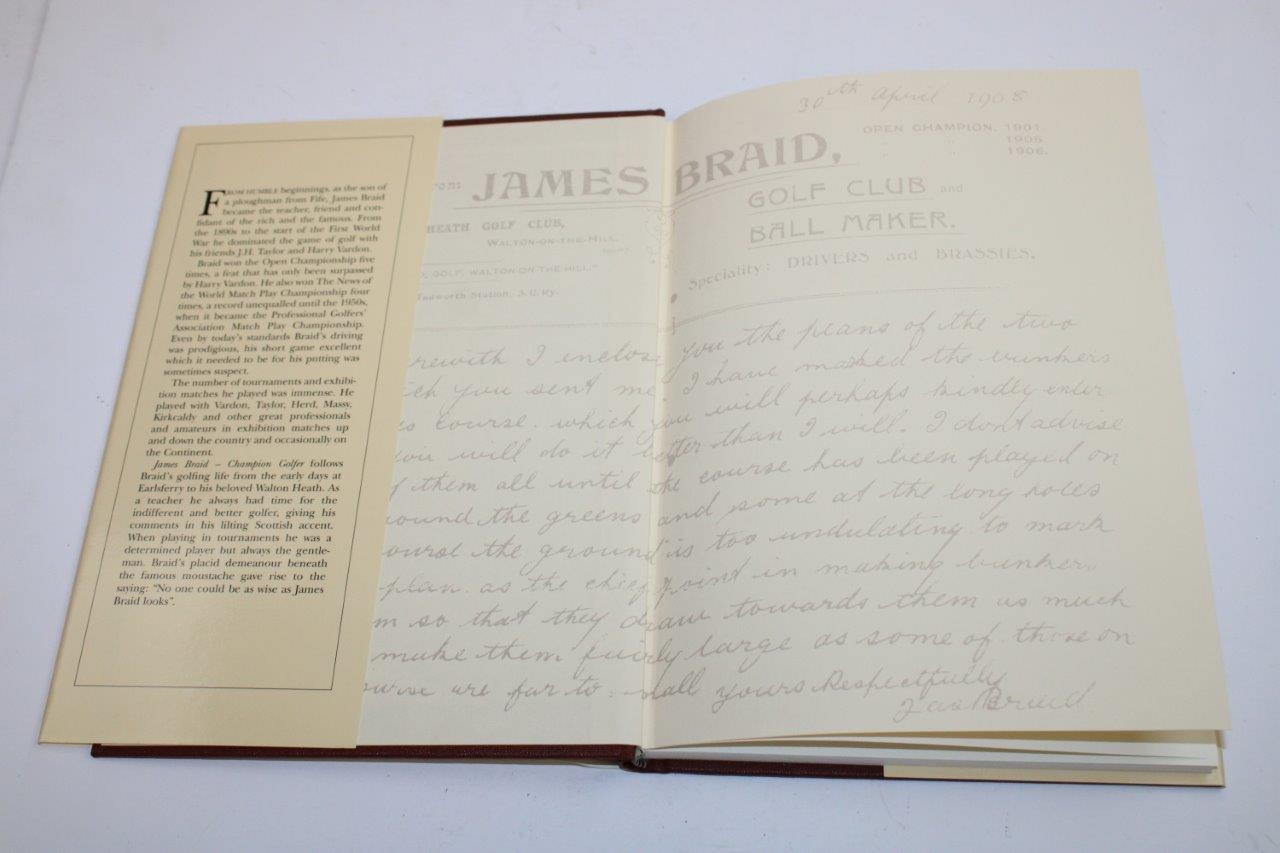 FROM HUMBLE beginnings, as the son of
a ploughman from Fife, James Braid
became the teacher, friend and con-
fidant of the rich and the famous. From
the 1890s to the start of the First World
War he dominated the game of golf with
his friends J.H. Taylor and Harry Vardon.
Braid won the Open Championship five
times, a feat that has only been surpassed
by Harry Vardon. He also won The News of
the World Match Play Championship four
times, a record unequalled until the 1950s,
when it became the Professional Golfers'
Association Match Play Championship.
Even by today's standards Braid's driving
was prodigious, his short game excellent
which it needed to be for his putting was
sometimes suspect.
The number of tournaments and exhibi-
tion matches he played was immense. He
played with Vardon, Taylor, Herd, Massy,
Kirkcaldy and other great professionals
and amateurs in exhibition matches up
and down the country and occasionally on
the Continent.
James Braid – Champion Golfer follows
Braid's golfing life from the early days at
Earlsferry to his beloved Walton Heath. As
a teacher he always had time for the
indifferent and better golfer, giving his
comments in his lilting Scottish accent.
When playing in tournaments he was a
determined player but always the gentle-
man. Braid's placid demeanour beneath
the famous moustache gave rise to the
saying: "No one could be as wise as James
Braid looks".
30th April 1908
JAMES BRAID,
OPEN CHAMPION, 1901.
" " 1905.
" " 1906.
HEATH GOLF CLUB,
WALTON-ON-THE-HILL,
GOLF, WALTON ON THE HILL."
Tadworth Station, S.E. Ry.
GOLF CLUB and
BALL MAKER.
Speciality: DRIVERS and BRASSIES.
rewith I inclose you the plans of the two
ich you sent me. I have marked the bunkers
es course. which you will perhaps kindly enter
you will do it better than I will. I dont advise
f them all until the course has been played on
round the greens and some at the long holes
ourse the ground is too undulating to mark
plan. as the chief point in making bunkers
m so that they draw towards them as much
make them fairly large as some of those on
ourse are far to small yours Respectfully
Jas Braid